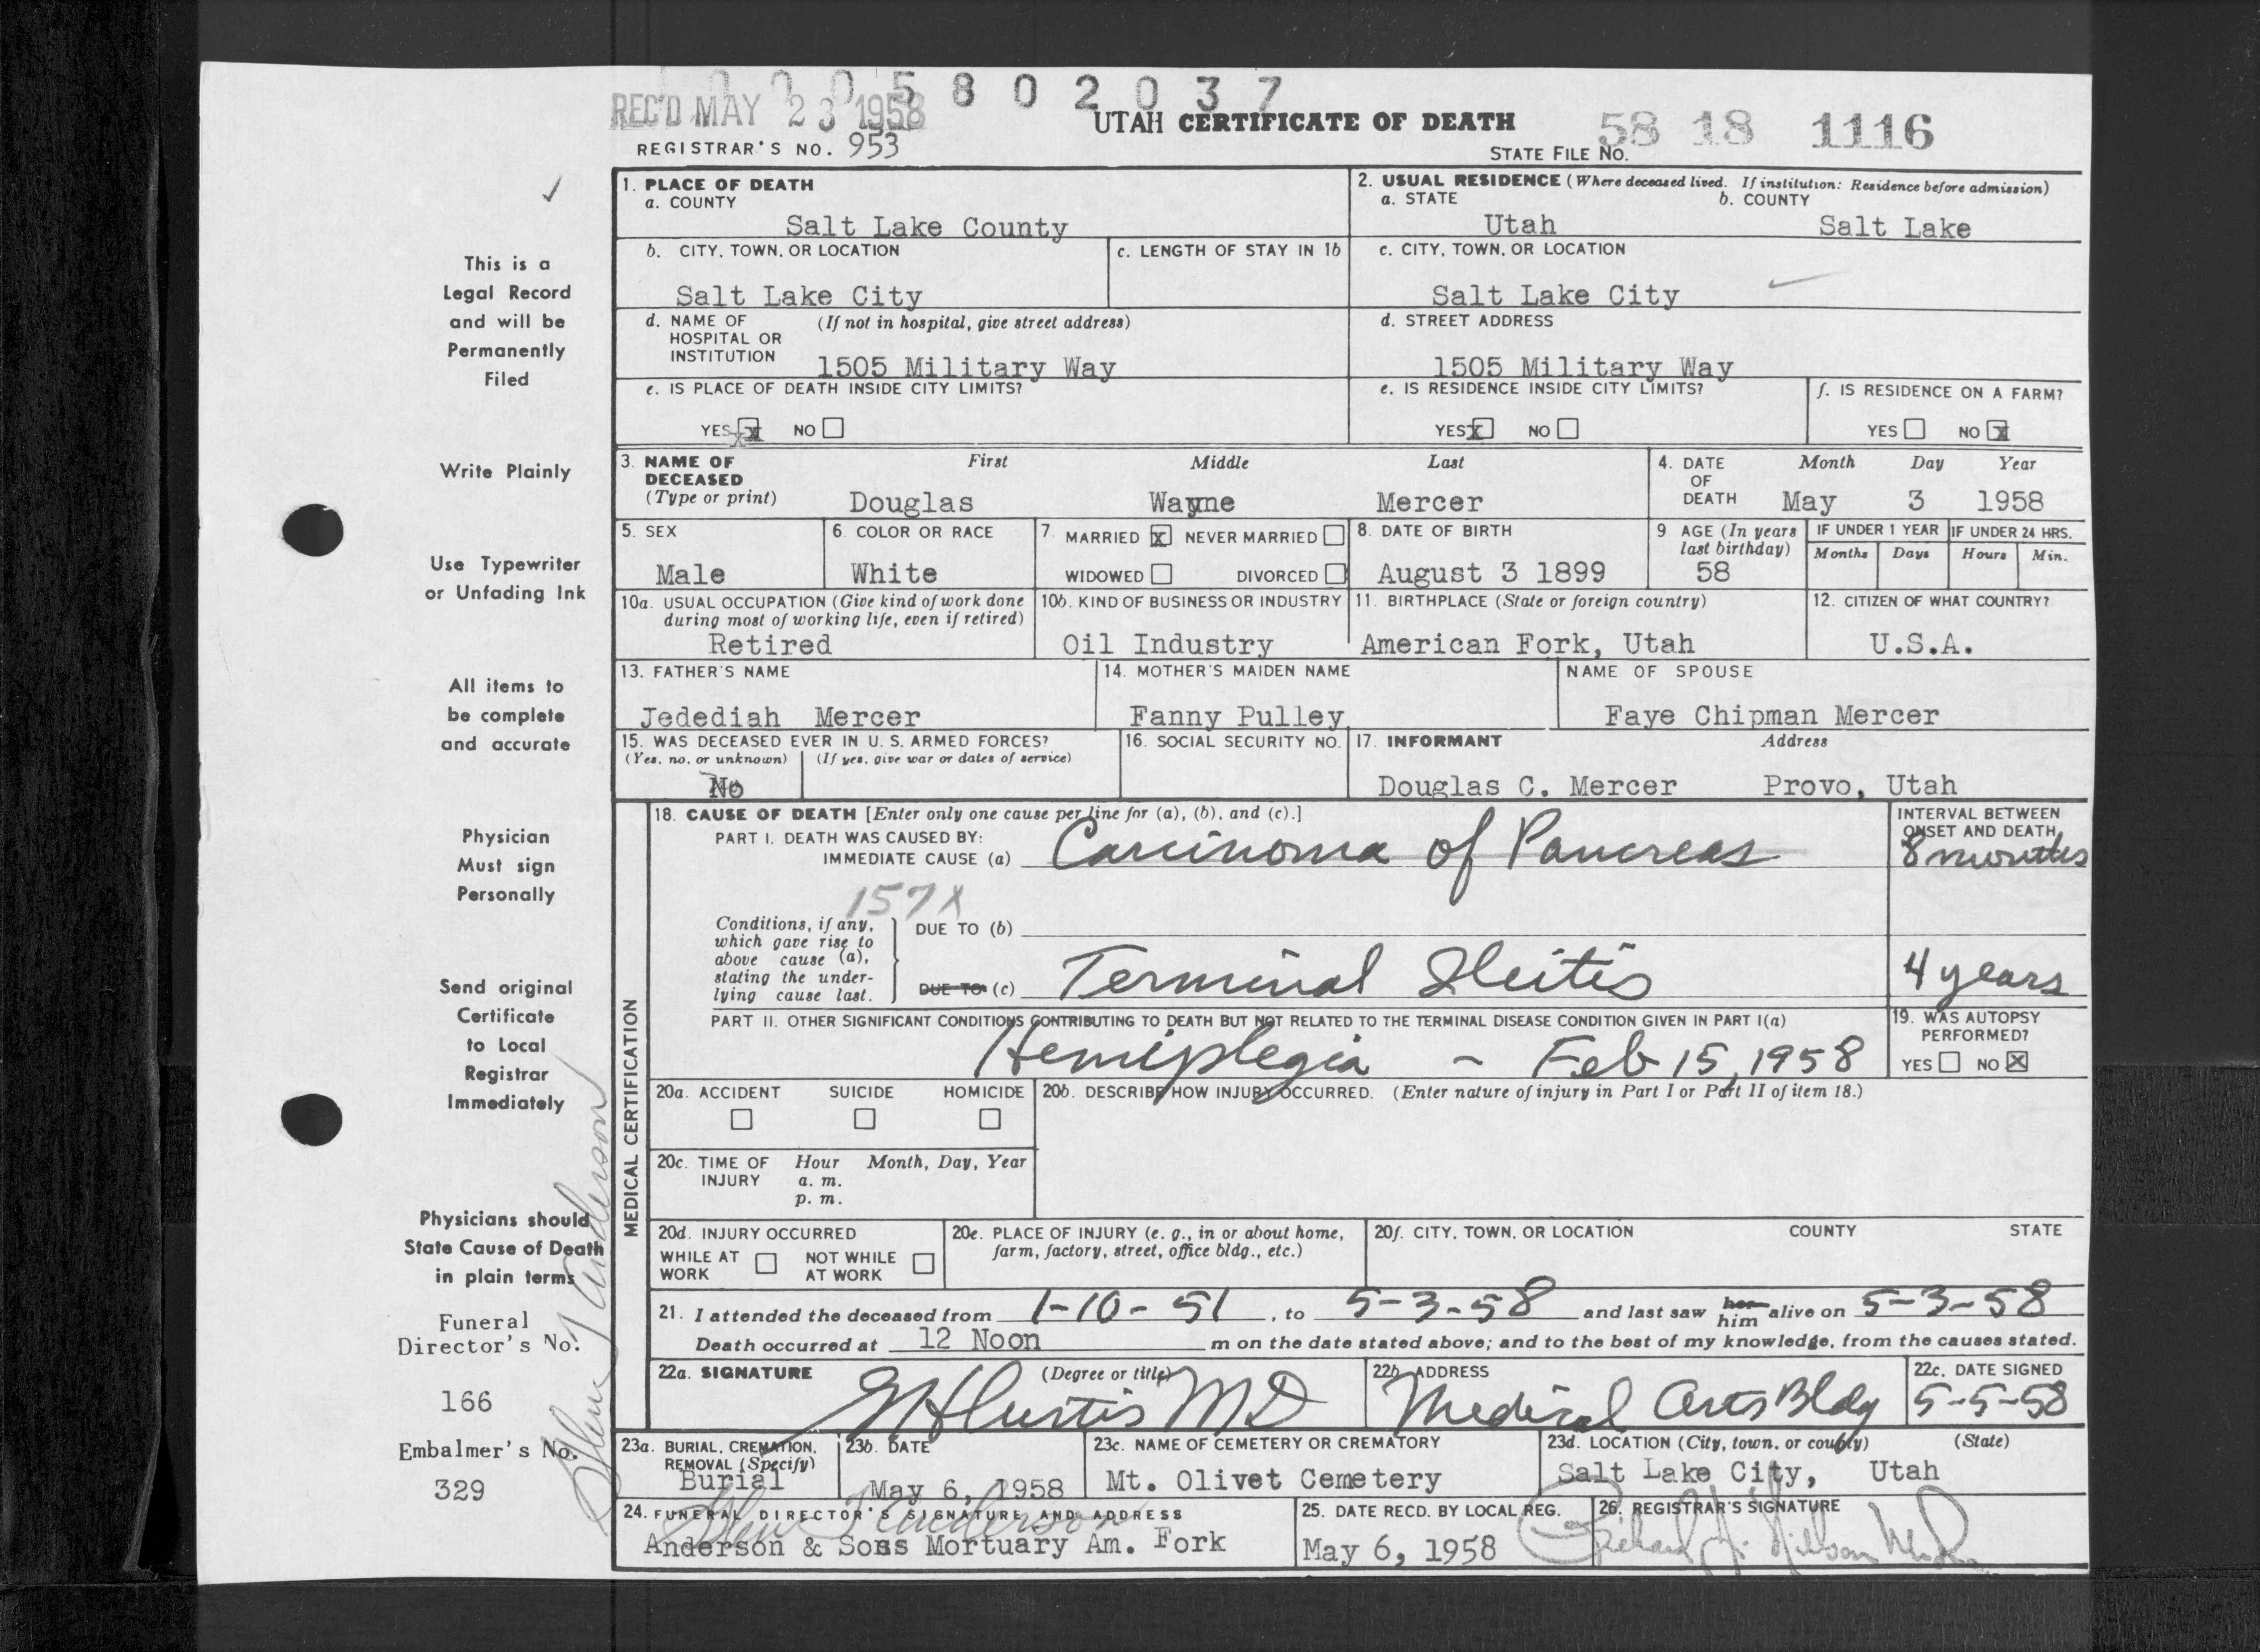 0 0 0 5 8 0 2 0 3 7
REC'D MAY 23 1958
UTAH CERTIFICATE OF DEATH
58 18 1116
REGISTRAR'S NO. 953
STATE FILE NO.
This is a
Legal Record
and will be
Permanently
Filed
Write Plainly
Use Typewriter
or Unfading Ink
All items to
be complete
and accurate
Physician
Must sign
Personally
Send original
Certificate
to Local
Registrar
Immediately
Physicians should
State Cause of Death
in plain terms
Funeral
Director's No.
166
Embalmer's No.
329
Glen J Anderson
1. PLACE OF DEATH
a. COUNTY
Salt Lake County
2. USUAL RESIDENCE (Where deceased lived. If institution: Residence before admission)
a. STATE b. COUNTY
Utah Salt Lake
b. CITY, TOWN, OR LOCATION c. LENGTH OF STAY IN 1b
Salt Lake City
c. CITY, TOWN, OR LOCATION
Salt Lake City
d. NAME OF (If not in hospital, give street address)
HOSPITAL OR
INSTITUTION 1505 Military Way
d. STREET ADDRESS
1505 Military Way
e. IS PLACE OF DEATH INSIDE CITY LIMITS?
YES X NO
e. IS RESIDENCE INSIDE CITY LIMITS?
YES X NO
f. IS RESIDENCE ON A FARM?
YES NO X
3. NAME OF First Middle Last
DECEASED
(Type or print) Douglas Wayne Mercer
4. DATE Month Day Year
OF
DEATH May 3 1958
5. SEX
Male
6. COLOR OR RACE
White
7. MARRIED X NEVER MARRIED
WIDOWED DIVORCED
8. DATE OF BIRTH
August 3 1899
9 AGE (In years
last birthday)
58
IF UNDER 1 YEAR IF UNDER 24 HRS.
Months Days Hours Min.
10a. USUAL OCCUPATION (Give kind of work done
during most of working life, even if retired)
Retired
10b. KIND OF BUSINESS OR INDUSTRY
Oil Industry
11. BIRTHPLACE (State or foreign country)
American Fork, Utah
12. CITIZEN OF WHAT COUNTRY?
U.S.A.
13. FATHER'S NAME
Jedediah Mercer
14. MOTHER'S MAIDEN NAME
Fanny Pulley
NAME OF SPOUSE
Faye Chipman Mercer
15. WAS DECEASED EVER IN U. S. ARMED FORCES?
(Yes, no, or unknown) (If yes, give war or dates of service)
No
16. SOCIAL SECURITY NO.
17. INFORMANT Address
Douglas C. Mercer Provo, Utah
MEDICAL CERTIFICATION
18. CAUSE OF DEATH [Enter only one cause per line for (a), (b), and (c).]
PART I. DEATH WAS CAUSED BY:
IMMEDIATE CAUSE (a) Carcinoma of Pancreas
INTERVAL BETWEEN
ONSET AND DEATH
8 months
157X
Conditions, if any,
which gave rise to
above cause (a),
stating the under-
lying cause last.
DUE TO (b)
DUE TO (c) Terminal Ileitis
4 years
PART II. OTHER SIGNIFICANT CONDITIONS CONTRIBUTING TO DEATH BUT NOT RELATED TO THE TERMINAL DISEASE CONDITION GIVEN IN PART I(a)
Hemiplegia - Feb 15, 1958
19. WAS AUTOPSY
PERFORMED?
YES NO X
20a. ACCIDENT SUICIDE HOMICIDE
20b. DESCRIBE HOW INJURY OCCURRED. (Enter nature of injury in Part I or Part II of item 18.)
20c. TIME OF Hour Month, Day, Year
INJURY a. m.
p. m.
20d. INJURY OCCURRED
WHILE AT NOT WHILE
WORK AT WORK
20e. PLACE OF INJURY (e. g., in or about home,
farm, factory, street, office bldg., etc.)
20f. CITY, TOWN, OR LOCATION COUNTY STATE
21. I attended the deceased from 1-10-51, to 5-3-58 and last saw her him alive on 5-3-58
Death occurred at 12 Noon m on the date stated above; and to the best of my knowledge, from the causes stated.
22a. SIGNATURE (Degree or title)
Curtis MD
22b. ADDRESS
Medical Arts Bldg
22c. DATE SIGNED
5-5-58
23a. BURIAL, CREMATION,
REMOVAL (Specify)
Burial
23b. DATE
May 6, 1958
23c. NAME OF CEMETERY OR CREMATORY
Mt. Olivet Cemetery
23d. LOCATION (City, town, or county) (State)
Salt Lake City, Utah
24. FUNERAL DIRECTOR'S SIGNATURE AND ADDRESS
Glen J Anderson
Anderson & Sons Mortuary Am. Fork
25. DATE RECD. BY LOCAL REG.
May 6, 1958
26. REGISTRAR'S SIGNATURE